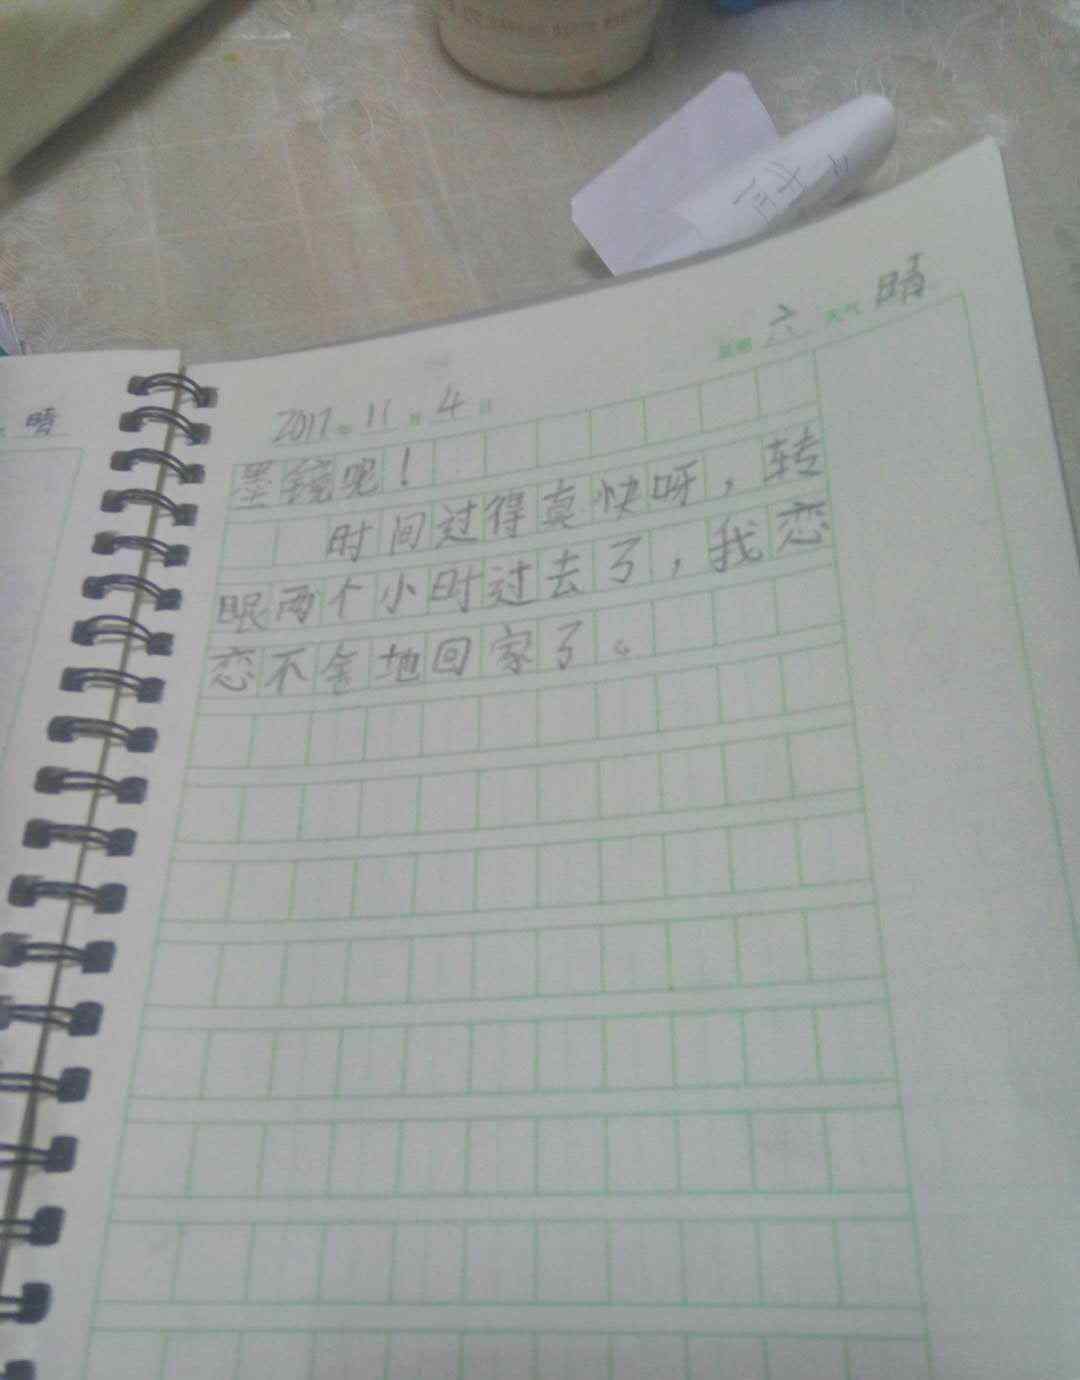 晴
星期 六 天气 晴
2017年 11月 4日
墨镜呢！
时间过得真快呀，转
眼两个小时过去了，我恋
恋不舍地回家了。